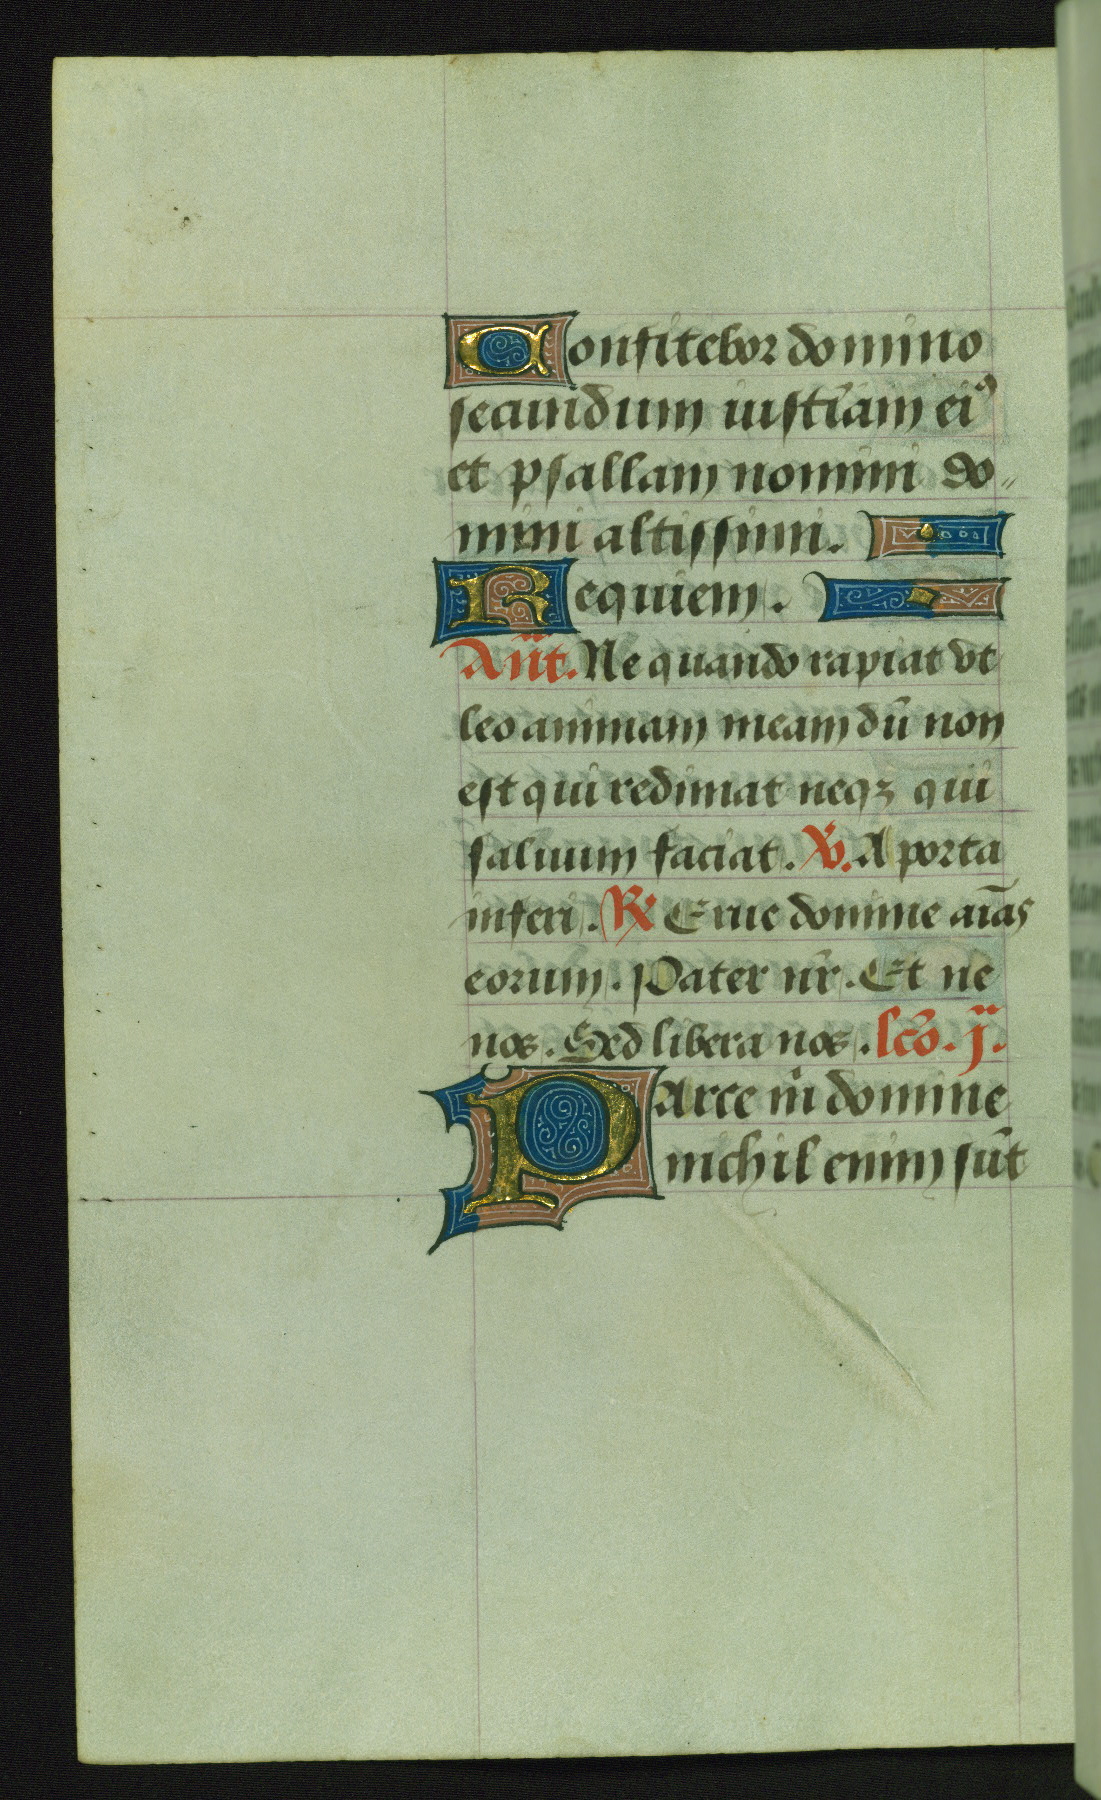 Confitebor domino
secundum iustīam ei⁹
et psallam nomini do〃
mini altissimi.
Requiem.
Añt. Ne quando rapiat vt
leo animam meam dū non
est qui redimat neqꝫ qui
saluum faciat. ℣. A porta
inferi. ℟ Erue domine aīas
eorum. Pater nr̄. Et ne
nos. Sed libera nos. lcō. j.
Parce m̄ domine
nichil enim sūt